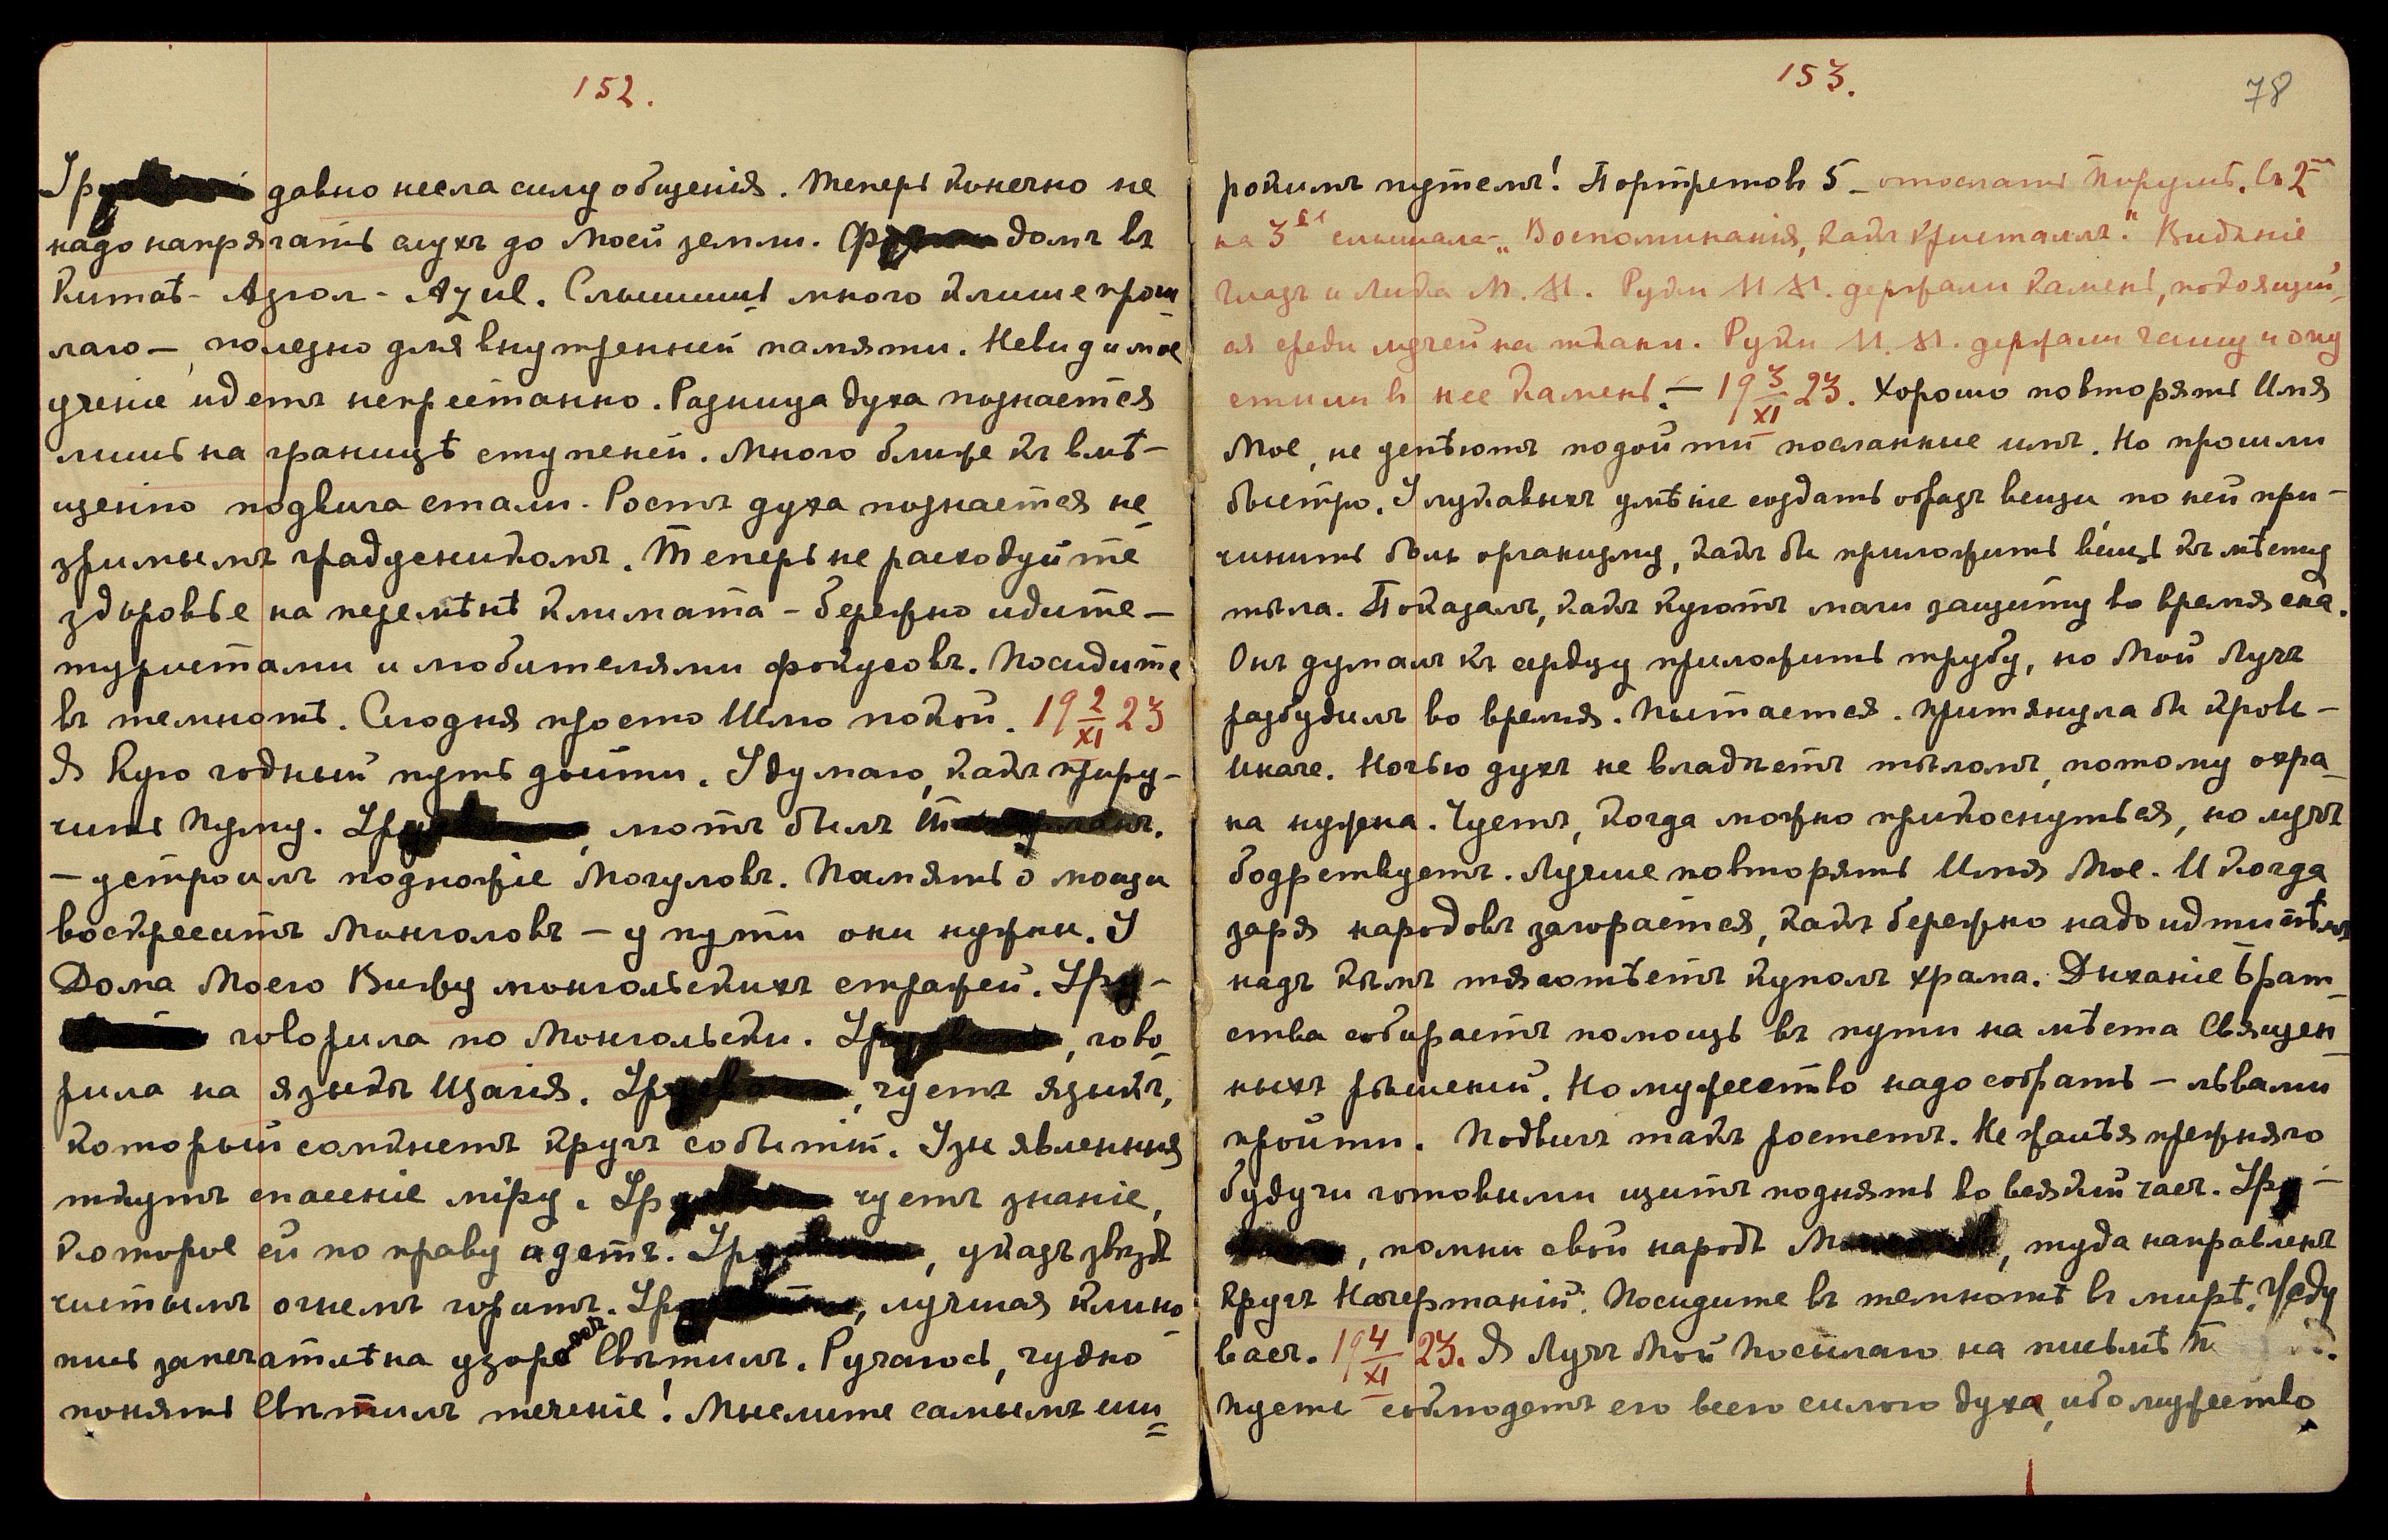 152.
давно несла силу общенія. Теперь конечно не
надо напрягать слухъ до Моей земли. домъ въ
Китаѣ - Азгол - Azul. Слышишь много клише прош
лаго — полезно для внутренней памяти. Невидимое
ученіе идетъ непрестанно. Разница духа познается
лишь на границѣ ступеней. Много ближе къ вмѣ-
щенію подвига стали. Ростъ духа познается не
зримымъ градусникомъ. Теперь не расходуйте
здоровье на перемѣнѣ климата - бережно идите —
туристами и любителями фокусовъ. Посидите
въ темнотѣ. Сегодня просто Шлю покой. 19 2/XI 23
Я Кую годный путь дойти. Удумаю, какъ приру-
чить Пуму. мотъ былъ
— устроилъ подножіе Могуловъ. Память о мощи
воскреситъ Монголовъ — у пути они нужны. У
Дома Моего Вижу монгольскихъ стражей. Уру-
говорила по Монгольски. , гово
рила на языкѣ Щагія. , чуетъ языкъ,
который сомкнетъ кругъ событій. Узы явленныя
ткутъ спасеніе міру. чуетъ знаніе,
которое ей по праву идетъ. , указъ звѣздъ
чистымъ огнемъ горитъ. , лучшая клино
пись запечатлѣна узоромъ Свѣтилъ. Ручаюсь, чудно
понять Свѣтилъ теченіе! Мыслите самымъ ши
153.
78
рокимъ путемъ! Портретовъ 5 - отослать Поруми. Съ 2го
на 3е слышала - „Воспоминанія, какъ кристаллъ." Видѣніе
глазъ и лика М. М. Руки М. М. держали камень, находящій
ся среди лучей на ткани. Руки М. М. держали чашу и опу
стили въ нее камень. — 19 3/XI 23. Хорошо повторять Имя
Мое, не успѣютъ подойти посланные имъ. Но прошли
быстро. У лукавыхъ умѣніе создать образъ вещи по ней при-
чинить боль организму, какъ бы приложить вещь къ мѣсту
тѣла. Показалъ, какъ куютъ маги защиту во время сна.
Онъ думалъ къ сердцу приложить трубу, но Мой Лучъ
разбудилъ во время. Пытается. Притянула бы кровь -
иначе. Ночью духъ не владѣетъ тѣломъ, потому охра
на нужна. Чуетъ, когда можно прикоснуться, но лучъ
бодрствуетъ. Лучше повторять Имя Мое. И когда
заря народовъ загорается, какъ бережно надо идти тѣмъ
надъ кѣмъ тяготѣетъ куполъ храма. Дыханіе Брат
ства собираетъ помощь въ пути на мѣста Священ
ныхъ рѣшеній. Но мужество надо собрать — львами
пройти. Подвигъ такъ ростетъ. Не жалѣя прежняго
будучи готовыми щитъ поднять во всякій часъ. Уру -
, помни свой народъ , туда направленъ
кругъ Начертаній. Посидите въ темнотѣ въ мирѣ. Жду
васъ. 19 4/XI 23. Я Лучъ Мой Посылаю на письмѣ
Пусть соблюдетъ его всею силою духа, ибо мужество